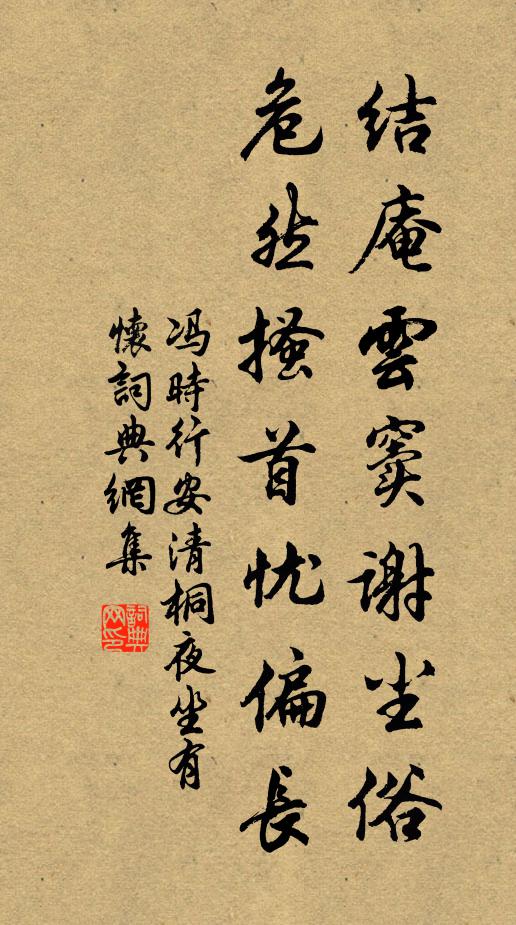 结庵雲窦谢尘俗
危然搔首忧偏長
冯時行安清桐夜坐有
懷詞典網集
詞典
网印